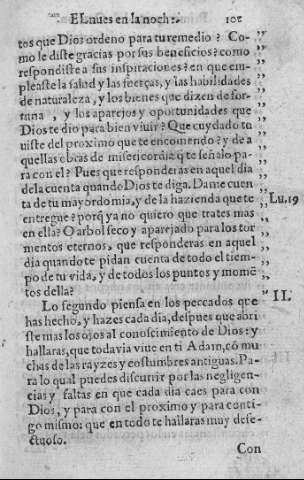 El lunes en la noche. 102
tos que Dios ordeno para tu remedio? Co-
mo le diste gracias por sus beneficios? como
respondiste a sus inspiraciones? en que em-
pleaste la salud y las fuerças, y las habilidades
de naturaleza, y los bienes que dizen de for-
tuna, y los aparejos y oportunidades que
Dios te dio para bien viuir? Que cuydado tu
uiste del proximo que te encomendo? y de a
quellas obras de misericordia q̃ te señalo pa-
ra con el? Pues que responderas en aquel dia
de la cuenta quando Dios te diga. Dame cuen
ta de tu mayordomia, y de la hazienda que te Lu.19
entregue? porq̃ ya no quiero que trates mas
en ella? O arbol seco y aparejado para los tor
mentos eternos, que responderas en aquel
dia quando te pidan cuenta de todo el tiem-
po de tu vida, y de todos los puntos y momẽ
tos della?
II.
Lo segundo piensa en los peccados que
has hecho, y hazes cada dia, despues que abri
ste mas los ojos al conoscimiento de Dios: y
hallaras, que todavia viue en ti Adam, cõ mu
chas de las rayzes y costumbres antiguas. Pa-
ra lo qual puedes discurrir por las negligen-
cias y faltas en que cada dia caes para con
Dios, y para con el proximo y para conti-
go mismo: que en todo te hallaras muy defe-
ctuoso.
Con